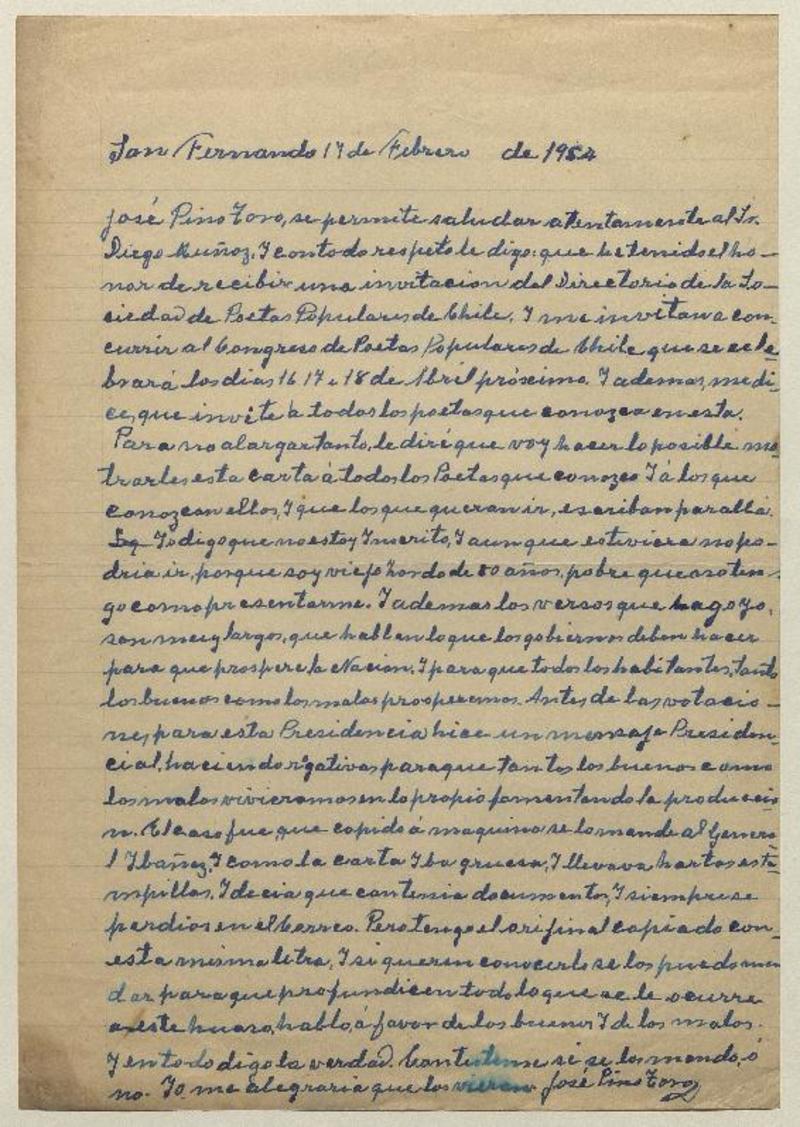 San Fernando 17 de Febrero de 1954
José Pino Toro, se permite saludar atentamente al Sr.
Diego Muñoz. I con todo respeto le digo: que he tenido el ho-
nor de recibir una invitacion del Directorio de la So-
ciedad de Poetas Populares de Chile. I me invitan a con-
currir al Congreso de Poetas Populares de Chile que se cele
brará los dias 16 17 i 18 de Abril próximo. I ademas, me di-
ce, que invite á todos los poetas que conozca en esta.
Para no alargar tanto, le diré que voy hacer lo posible mo
trarles esta carta á todos los Poetas que conozco I á los que
conozcan ellos, I que los que queran ir, escriban para allá.
Yo digo que no estoy Inscrito, I aun que estuviera no po-
dria ir, porque soy viejo Sordo de 80 años, pobre que aso ten-
go como presentarme. I ademas los versos que hago yo,
son muy largos, que hablan lo que los gobiernos deben hacer
para que prospere la Nacion. I para que todos los habitantes, tanto
los buenos como los malos prosperemos. Antes de las votacio-
nes para esta Presidencia hice un mensaje Presiden-
cial, haciendo rogativas para que tantos los buenos como
los malos vivieramos en lo propio fomentando la produccio
n. El caso fue, que copido á maquina se lo mande al Genera
l Ibañez, I como la carta Iba gruesa, I llevava hartas está
mpillas. I decia que contenia documentos, I siempre se
perdios en el Correo. Pero tengo el orijinal copiado con
esta misma letra, I si queren conocerlo se los puedo man
dar para que profundicen todo lo que se le ocurre
a este huaso, hablo, á favor de los buenos I de los malos.
I en todo digo la verdad. Contesteme si se los mando, ó
no. Yo me alegraria que los vieran José Pino Toro